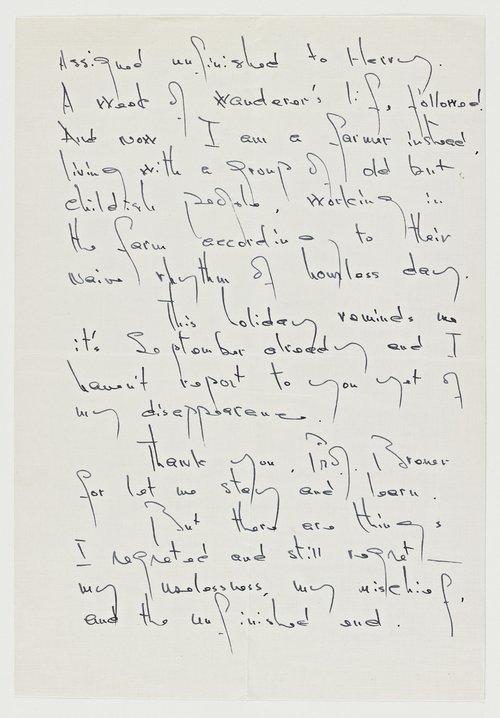 Assigned unfinished to Henry.
A week of wanderer's life followed.
And now I am a farmer instead,
living with a group of old but
childish people, working in
the farm according to their
naive rhythm of hourless day.
This holiday reminds me
it's September already and I
haven't report to you yet of
my disappearance.
Thank you, Prof. Breuer
for let me stay and learn.
But there are things
I regreted and still regret —
my uselessness, my mischief,
and the unfinished end.